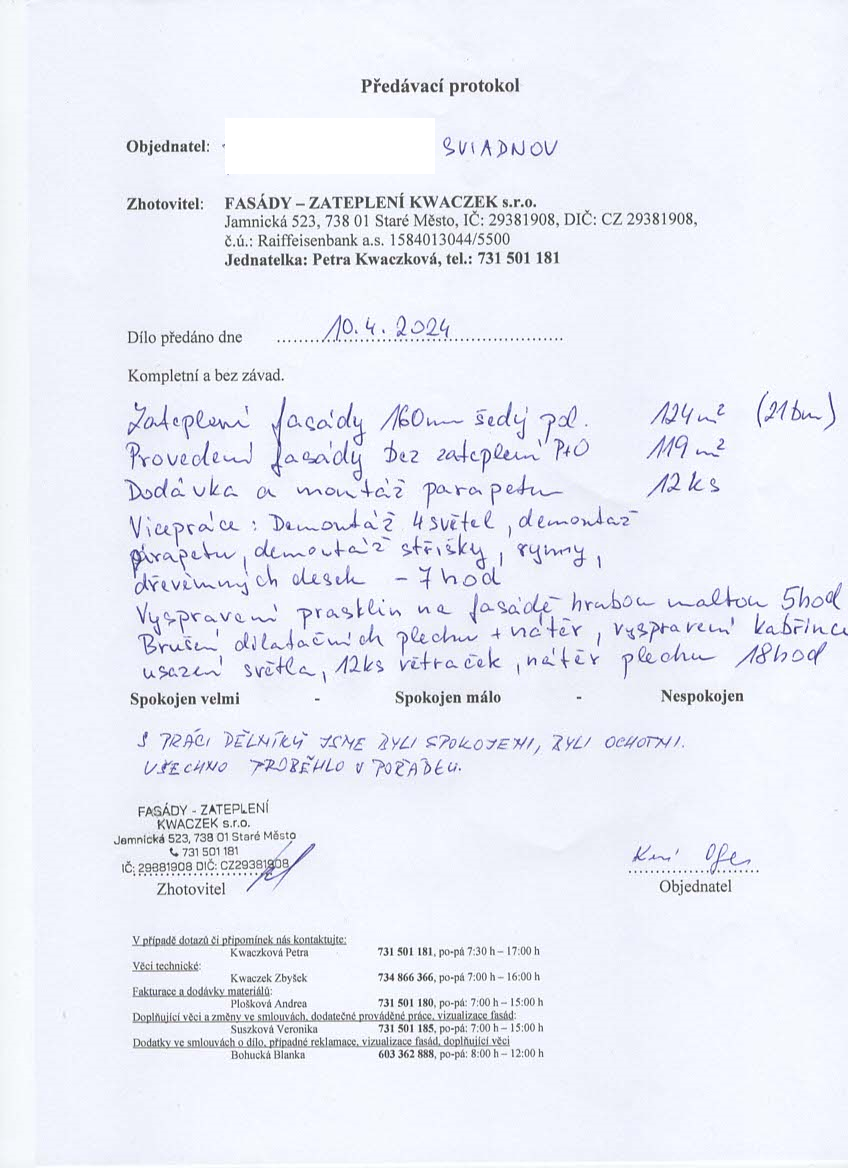 Předávací protokol
Objednatel: SVIADNOV
Zhotovitel: FASÁDY – ZATEPLENÍ KWACZEK s.r.o.
Jamnická 523, 738 01 Staré Město, IČ: 29381908, DIČ: CZ 29381908,
č.ú.: Raiffeisenbank a.s. 1584013044/5500
Jednatelka: Petra Kwaczková, tel.: 731 501 181
Dílo předáno dne 10.4.2024
Kompletní a bez závad.
Zateplení fasády 160mm šedý pol. 124m² (21bm)
Provedení fasády bez zateplení P+O 119m²
Dodávka a montáž parapetu 12ks
Vícepráce: Demontáž 4 světel, demontáž
parapetu, demontáž stříšky, rynny,
dřevěnných desek - 7hod
Vyspravení prasklin na fasádě hrubou maltou 5hod
Brušení dilatačních plechu + nátěr, vyspravení kabřince
usazení světla, 12ks větraček, nátěr plechu 18hod
Spokojen velmi - Spokojen málo - Nespokojen
S PRÁCI DĚLNÍKŮ JSME BYLI SPOKOJENI, BYLI OCHOTNI.
VŠECHNO PROBĚHLO V POŘÁDKU.
FASÁDY - ZATEPLENÍ
KWACZEK s.r.o.
Jamnická 523, 738 01 Staré Město
731 501 181
IČ: 29381908 DIČ: CZ29381908
Zhotovitel Objednatel
V případě dotazů či připomínek nás kontaktujte:
Kwaczková Petra 731 501 181, po-pá 7:30 h – 17:00 h
Věci technické:
Kwaczek Zbyšek 734 866 366, po-pá 7:00 h – 16:00 h
Fakturace a dodávky materiálů:
Plošková Andrea 731 501 180, po-pá: 7:00 h – 15:00 h
Doplňující věci a změny ve smlouvách, dodatečné prováděné práce, vizualizace fasád:
Suszková Veronika 731 501 185, po-pá: 7:00 h – 15:00 h
Dodatky ve smlouvách o dílo, případné reklamace, vizualizace fasád, doplňující věci
Bohucká Blanka 603 362 888, po-pá: 8:00 h – 12:00 h